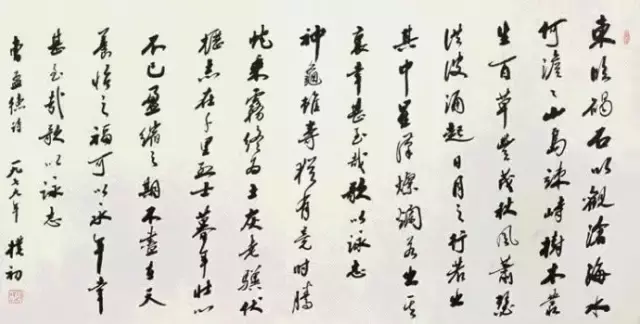 東臨碣石以觀滄海水
何澹〻山島竦峙樹木叢
生百草豐茂秋風蕭瑟
洪波涌起日月之行若出
其中星漢燦爛若出其
裏幸甚至哉歌以詠志
神龜雖壽猶有竟時騰
蛇乘霧終為土灰老驥伏
櫪志在千里烈士暮年壯心
不已盈縮之期不盡在天
養怡之福可以永年幸
甚至哉歌以詠志
曹孟德詩 一九七年 樸初